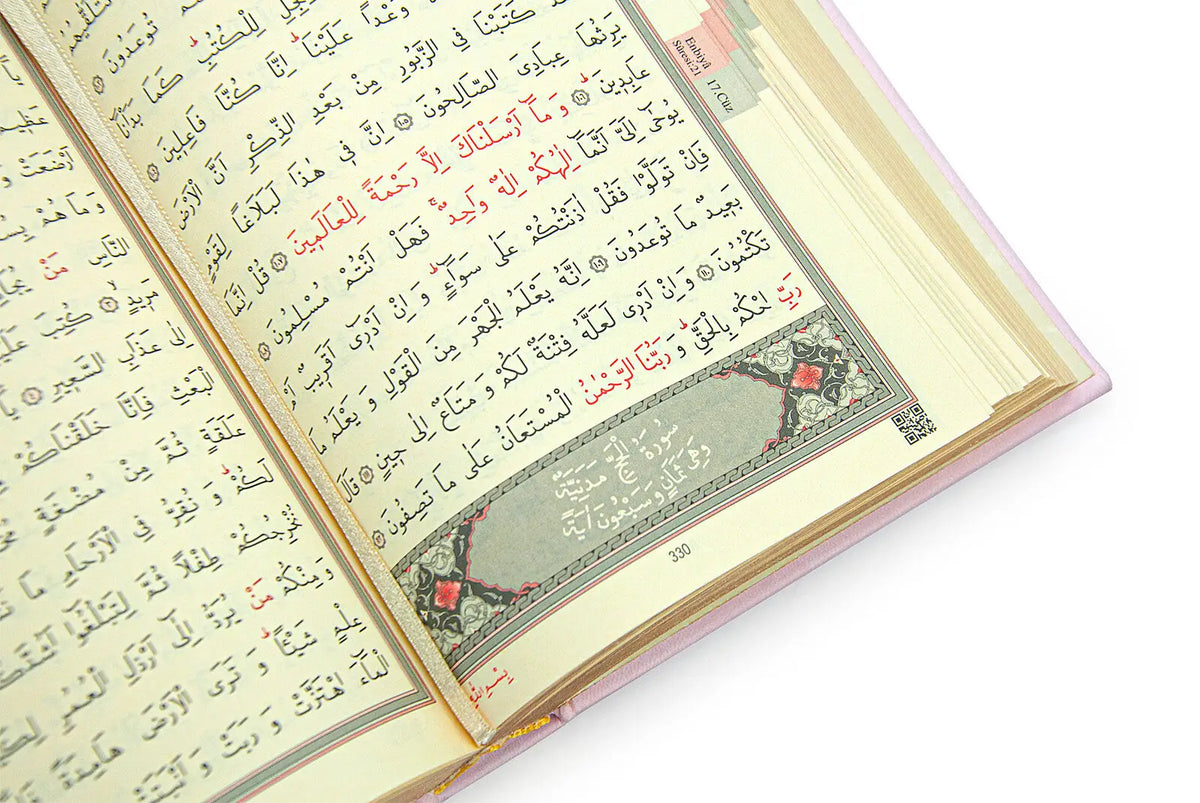 تُوعَدُونَ ﴿١٠٣﴾
لِلْكُتُبِ كَمَا بَدَاْنَا
وَعْدًا عَلَيْنَا اِنَّا كُنَّا فَاعِلٖينَ ﴿١٠٤﴾
كَتَبْنَا فِي الزَّبُورِ مِنْ بَعْدِ الذِّكْرِ اَنَّ الْاَرْضَ
يَرِثُهَا عِبَادِيَ الصَّالِحُونَ ﴿١٠٥﴾ اِنَّ فٖي هٰذَا لَبَلَاغًا لِقَوْمٍ
عَابِدٖينَ ﴿١٠٦﴾ وَمَٓا اَرْسَلْنَاكَ اِلَّا رَحْمَةً لِلْعَالَمٖينَ ﴿١٠٧﴾ قُلْ اِنَّمَا
يُوحٰٓى اِلَيَّ اَنَّمَٓا اِلٰهُكُمْ اِلٰهٌ وَاحِدٌۚ فَهَلْ اَنْتُمْ مُسْلِمُونَ ﴿١٠٨﴾
فَاِنْ تَوَلَّوْا فَقُلْ اٰذَنْتُكُمْ عَلٰى سَوَٓاءٍۜ وَاِنْ اَدْرٖٓي اَقَرٖيبٌ اَمْ
بَعٖيدٌ مَا تُوعَدُونَ ﴿١٠٩﴾ اِنَّهُ يَعْلَمُ الْجَهْرَ مِنَ الْقَوْلِ وَيَعْلَمُ مَا
تَكْتُمُونَ ﴿١١٠﴾ وَاِنْ اَدْرٖي لَعَلَّهُ فِتْنَةٌ لَكُمْ وَمَتَاعٌ اِلٰى حٖينٍ ﴿١١١﴾ قَالَ
رَبِّ احْكُمْ بِالْحَقِّۜ وَرَبُّنَا الرَّحْمٰنُ الْمُسْتَعَانُ عَلٰى مَا تَصِفُونَ ﴿١١٢﴾
سُورَةُ الْحَجِّ مَدَنِيَّةٌ
وَهِيَ ثَمَانٍ وَسَبْعُونَ اٰيَةً
330
Enbiyâ
Sûresi:21
17.Cüz
بِسْمِ اللّٰهِ
عَظٖيمٌ
اَرْضَعَتْ
وَمَا هُمْ
النَّاسِ مَنْ
مَرٖيدٍۙ ﴿٣﴾ كُتِبَ
اِلٰى عَذَابِ السَّعٖيرِ ﴿٤﴾
الْبَعْثِ فَاِنَّا خَلَقْنَاكُمْ
عَلَقَةٍ ثُمَّ مِنْ مُضْغَةٍ
لَكُمْۜ وَنُقِرُّ فِي الْاَرْحَامِ مَا
نُخْرِجُكُمْ طِفْلًا ثُمَّ لِتَبْلُغُٓوا اَشُدَّكُمْ
وَمِنْكُمْ مَنْ يُرَدُّ اِلٰٓى اَرْذَلِ الْعُمُرِ
عِلْمٍ شَيْـًٔاۜ وَتَرَى الْاَرْضَ هَامِدَةً
الْمَٓاءَ اهْتَزَّتْ وَرَبَتْ وَاَنْبَتَتْ